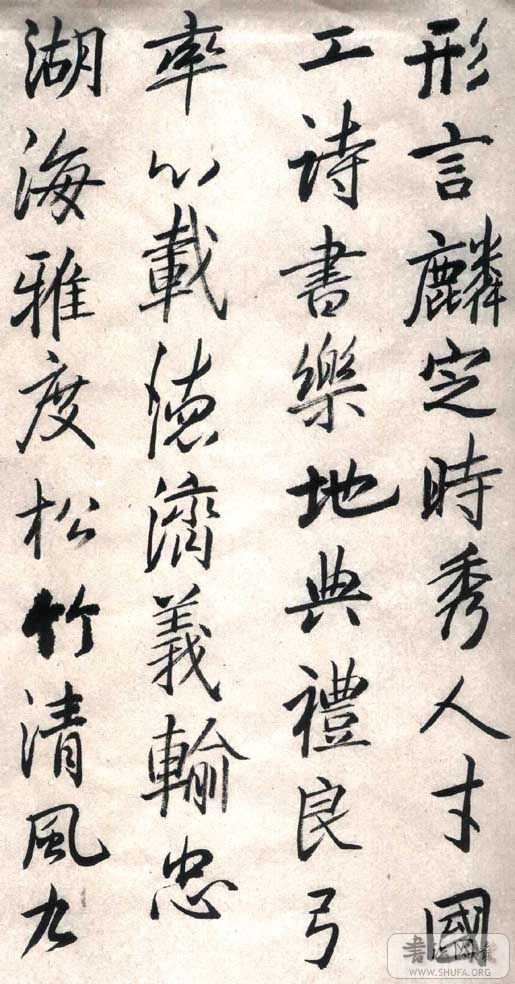 形言麟定時秀人才國
工詩書樂地典禮良弓
率載德濟義輸忠
湖海雅度松竹清風九
WWW.SHUFA.ORG